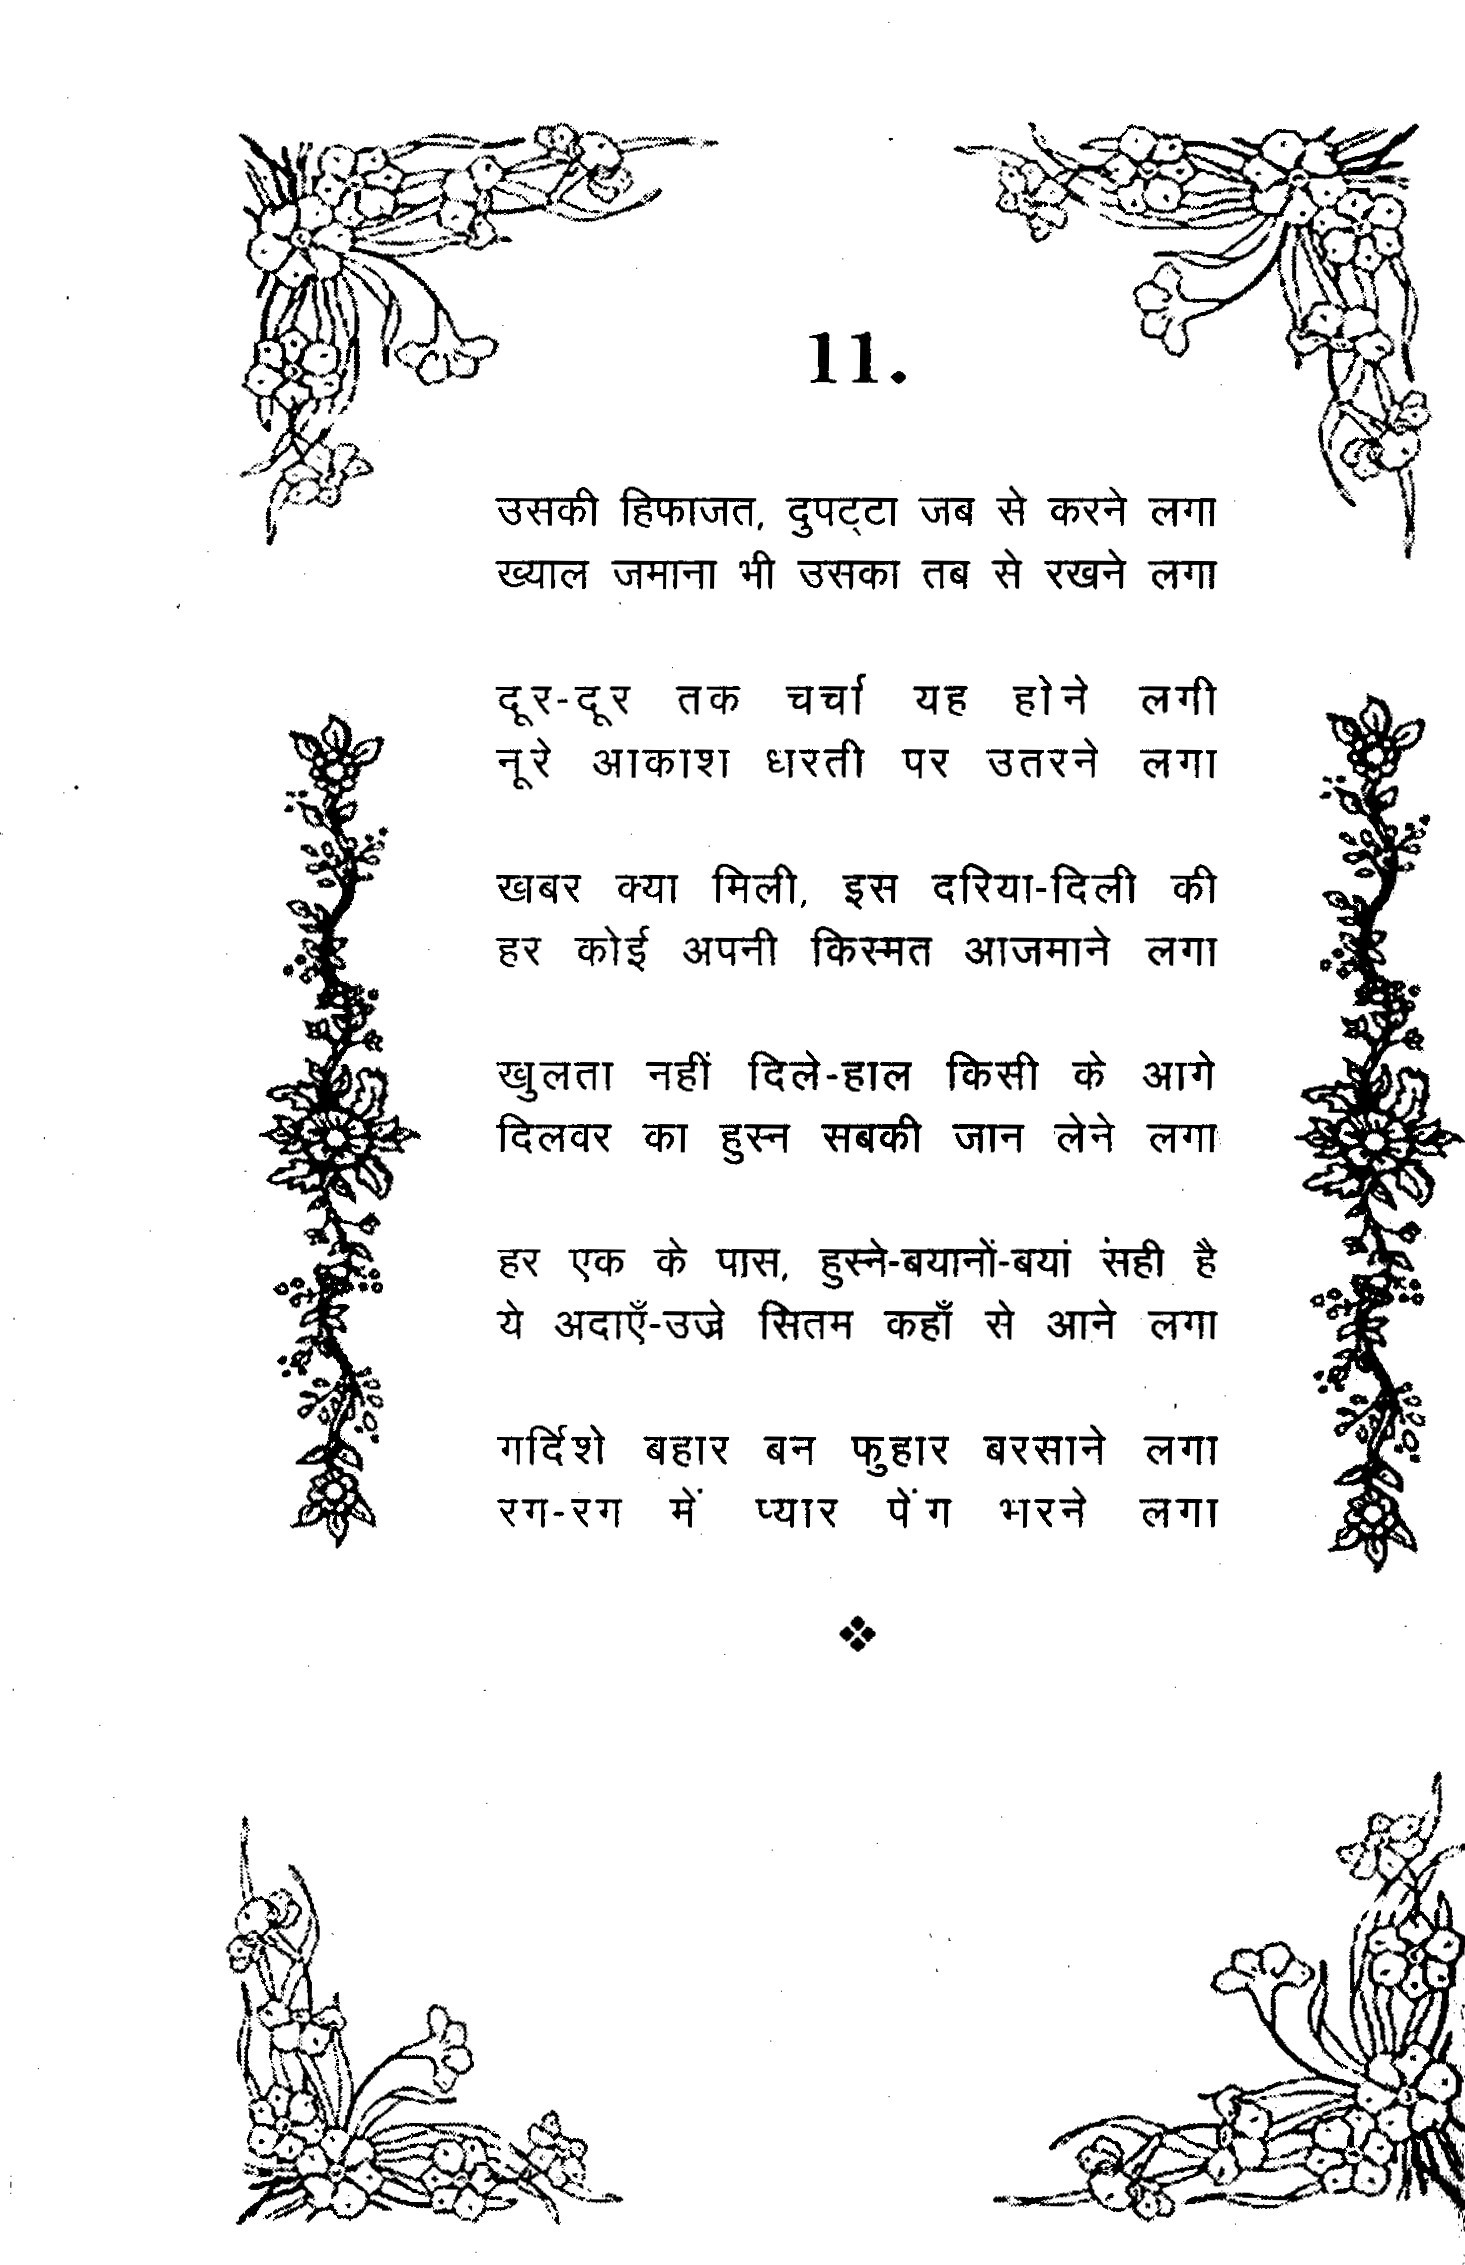 11.
उसकी हिफाजत, दुपट्टा जब से करने लगा
ख्याल जमाना भी उसका तब से रखने लगा
दूर-दूर तक चर्चा यह होने लगी
नूरे आकाश धरती पर उतरने लगा
खबर क्या मिली, इस दरिया-दिली की
हर कोई अपनी किस्मत आजमाने लगा
खुलता नहीं दिले-हाल किसी के आगे
दिलवर का हुस्न सबकी जान लेने लगा
हर एक के पास, हुस्ने-बयानों-बयां संही है
ये अदाएँ-उज्रे सितम कहाँ से आने लगा
गर्दिशे बहार बन फुहार बरसाने लगा
रग-रग में प्यार पेंग भरने लगा